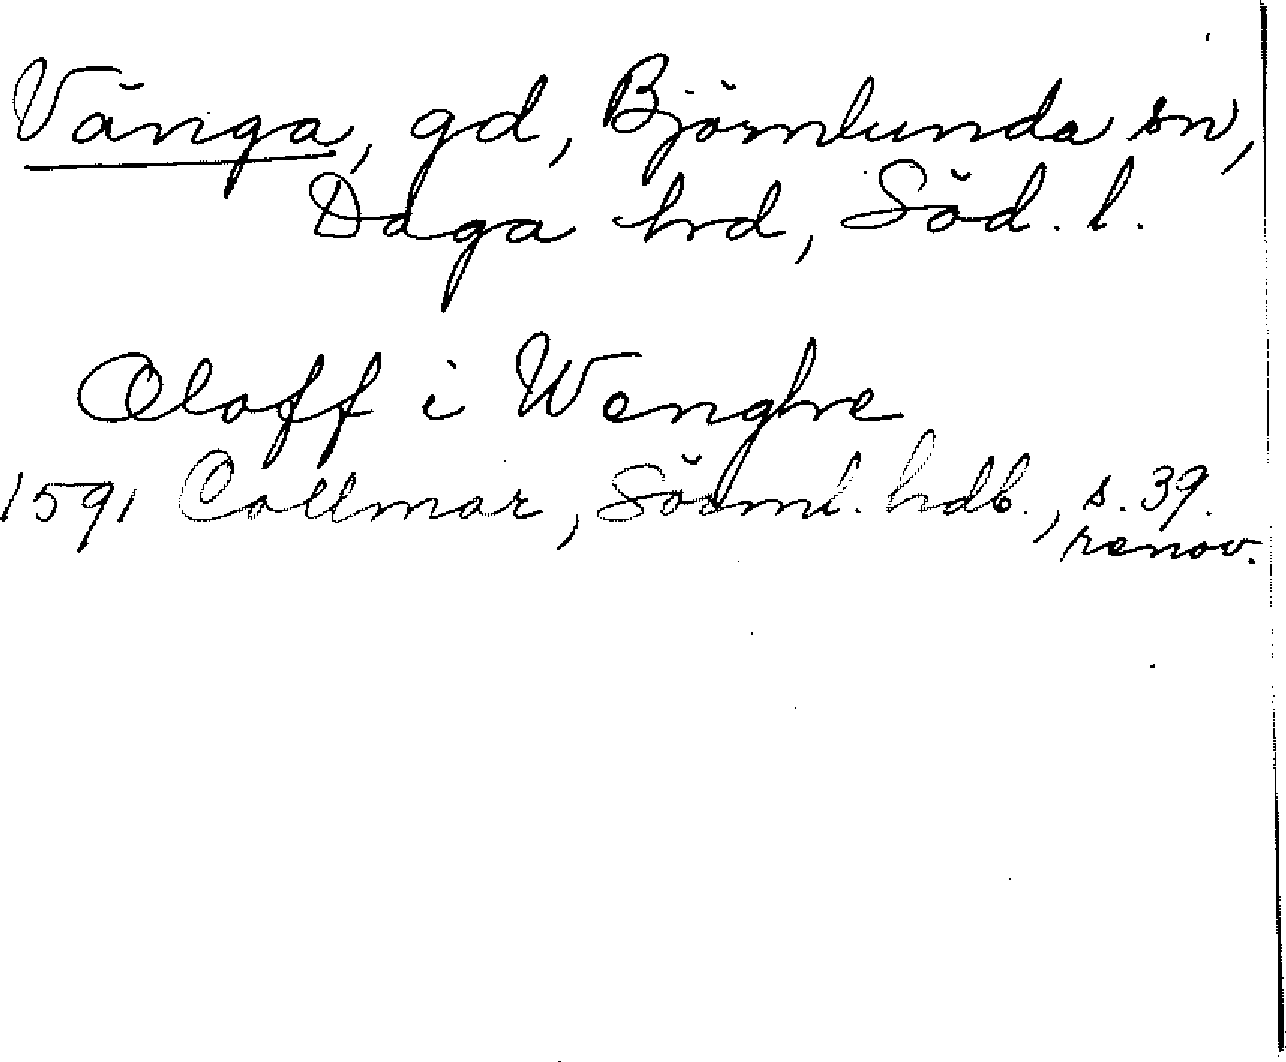 Vänga, gd, Björnlunda sn,
Daga hd, Söd. l.
Oloff i Wenghe
1591 Collmar, Sörml. hdb., s. 39.
renov.